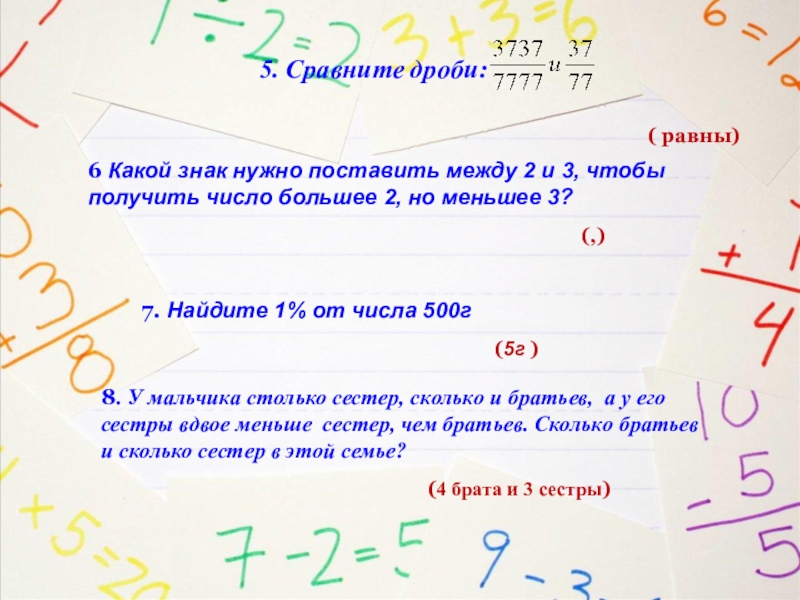 1 ÷ 2 = 2
3 + 3 = 6
6 =
5. Сравните дроби: 3737/7777 и 37/77
( равны)
6 Какой знак нужно поставить между 2 и 3, чтобы
получить число большее 2, но меньшее 3?
(,)
+
4
3
8
7. Найдите 1% от числа 500г
(5г )
8. У мальчика столько сестер, сколько и братьев, а у его
сестры вдвое меньше сестер, чем братьев. Сколько братьев
и сколько сестер в этой семье?
(4 брата и 3 сестры)
10
- 5
5
+ 5 = 20
7 - 2 = 5
9 - 3 =